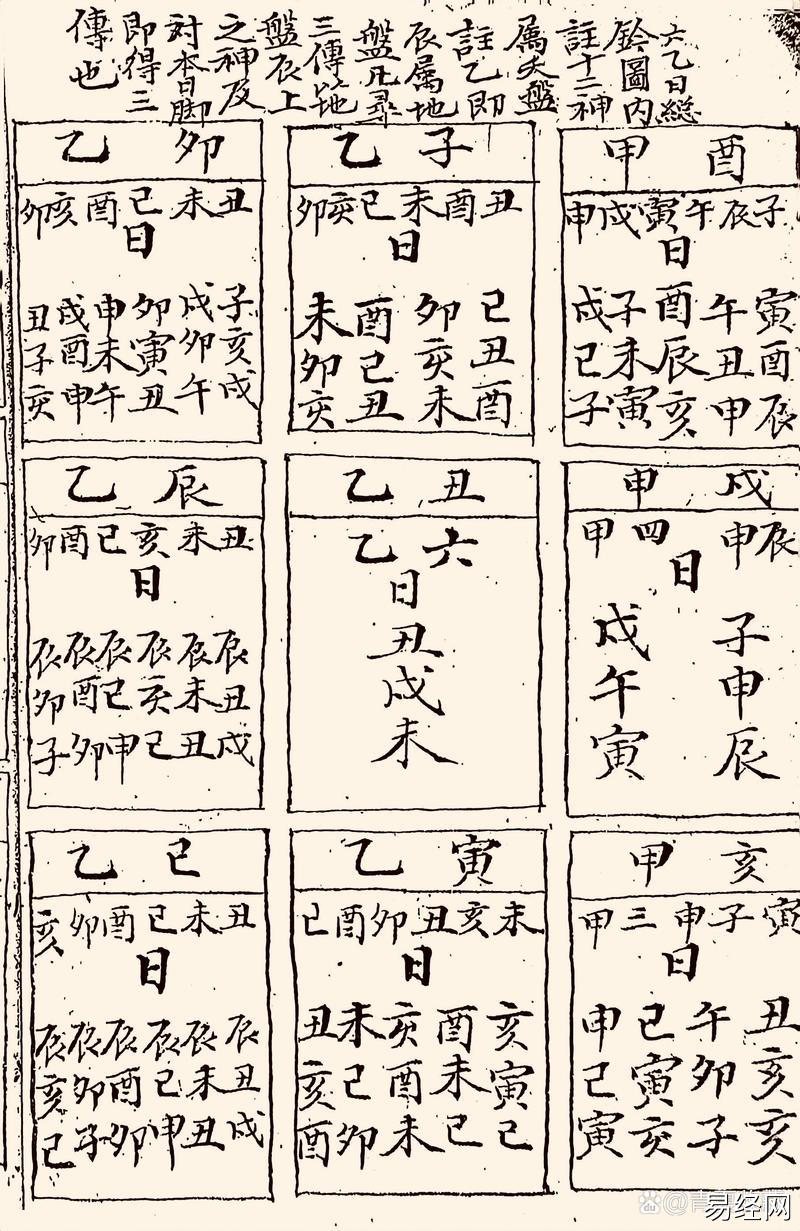 六乙日総
鈐圖内
註十二神
属天盤
註乙即
辰属地
盤凡尋
三傳以地
盤辰上
之神及
対本日脚
即得三
傳也
甲 酉
申戌寅午辰子
日
戌子酉午寅
巳未辰丑酉
子寅亥申辰
乙 子
卯亥巳未酉丑
日
未酉卯巳
卯巳亥丑
亥丑未酉
乙 卯
卯亥酉巳未丑
日
丑戌申卯戌子
子酉未寅卯亥
亥申午丑午戌
甲 戌
甲四 申辰
日
戌 子
午 申
寅 辰
乙 丑
乙六
日
丑
戌
未
乙 辰
卯酉巳亥未丑
日
辰辰辰辰辰辰
卯酉巳亥未丑
子卯申巳丑戌
甲 亥
甲三申子寅
日
申巳午丑
巳寅卯亥
寅亥子亥
乙 寅
巳酉卯丑亥未
日
丑未亥酉亥
亥巳酉未寅
酉卯未巳巳
乙 巳
亥卯酉巳未丑
日
辰辰辰辰辰辰
亥卯酉巳未丑
巳子卯申丑戌
易经网